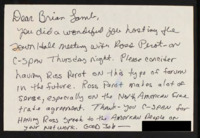 Dear Brian Lamb,
You did a wonderful job hosting the
Town Hall meeting with Ross Perot on
C-SPAN Thursday night. Please consider
having Ross Perot on this type of forum
in the future. Ross Perot makes a lot of
sense, especially on the North American Free
trade agreement. Thank-you C-SPAN for
having Ross speak to the American People on
your Network. Good Job